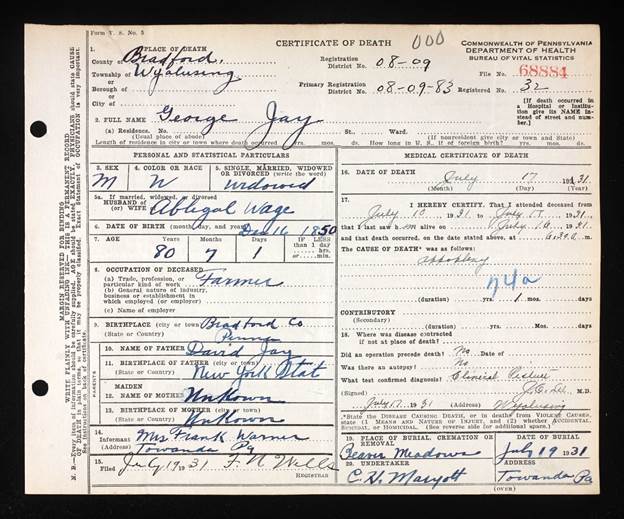 Form V. S. No. 5
CERTIFICATE OF DEATH
000
COMMONWEALTH OF PENNSYLVANIA
DEPARTMENT OF HEALTH
BUREAU OF VITAL STATISTICS
1. PLACE OF DEATH
County of Bradford,
Township of Wyalusing
or
Borough of
or
City of
Registration District No. 08-09
Primary Registration District No. 08-09-83
File No. 68884
Registered No. 32
[If death occurred in a Hospital or Institution give its NAME instead of street and number.]
2. FULL NAME George Jay
(a) Residence. No. St., Ward.
(Usual place of abode) (If nonresident give city or town and State)
Length of residence in city or town where death occurred yrs. mos. ds. How long in U. S., if of foreign birth? yrs. mos. ds.
MARGIN RESERVED FOR BINDING
WRITE PLAINLY WITH UNFADING INK—THIS IS A PERMANENT RECORD
PERSONAL AND STATISTICAL PARTICULARS
3. SEX M
4. COLOR OR RACE W
5. SINGLE, MARRIED, WIDOWED OR DIVORCED (write the word) Widowed
5a. If married, widowed, or divorced
HUSBAND of
(or) WIFE of Abbigal Wage
6. DATE OF BIRTH (month, day, and year) Dec 16 1850
7. AGE 80 7 1
IF LESS than 1 day hrs. or min.
8. OCCUPATION OF DECEASED
(a) Trade, profession, or particular kind of work Farmer
(b) General nature of industry, business or establishment in which employed (or employer)
(c) Name of employer
9. BIRTHPLACE (city or town) Bradford Co
(State or Country) Penna
PARENTS
10. NAME OF FATHER David Jay
11. BIRTHPLACE OF FATHER (city or town)
(State or Country) New York Stat
12. MAIDEN NAME OF MOTHER Unkown
13. BIRTHPLACE OF MOTHER (city or town)
(State or Country) Unkown
14. Informant Mrs Frank Warner
(Address) Towanda Pa
15. Filed July 19 1931 F. N. Wells
REGISTRAR
MEDICAL CERTIFICATE OF DEATH
16. DATE OF DEATH July 17 1931
(Month) (Day) (Year)
17. I HEREBY CERTIFY, That I attended deceased from
July 10 1931 to July 17, 1931
that I last saw him alive on July 10, 1931
and that death occurred, on the date stated above, at m.
The CAUSE OF DEATH* was as follows:
74a
(duration) yrs. 1 mos. ds.
CONTRIBUTORY
(Secondary)
(duration) yrs. mos. ds.
18. Where was disease contracted
if not at place of death?
Did an operation precede death? No Date of
Was there an autopsy? No
What test confirmed diagnosis? Clinical Picture
(Signed) M.D.
July 17 1931 (Address) Wyalusing
*State the DISEASE CAUSING DEATH, or in deaths from VIOLENT CAUSES, state (1) MEANS AND NATURE OF INJURY, and (2) whether ACCIDENTAL, SUICIDAL, or HOMICIDAL. (See reverse side for further instructions.)
19. PLACE OF BURIAL, CREMATION OR REMOVAL Beaver Meadows
DATE OF BURIAL July 19 1931
20. UNDERTAKER C. H. Maryott
ADDRESS Towanda Pa
(OVER)